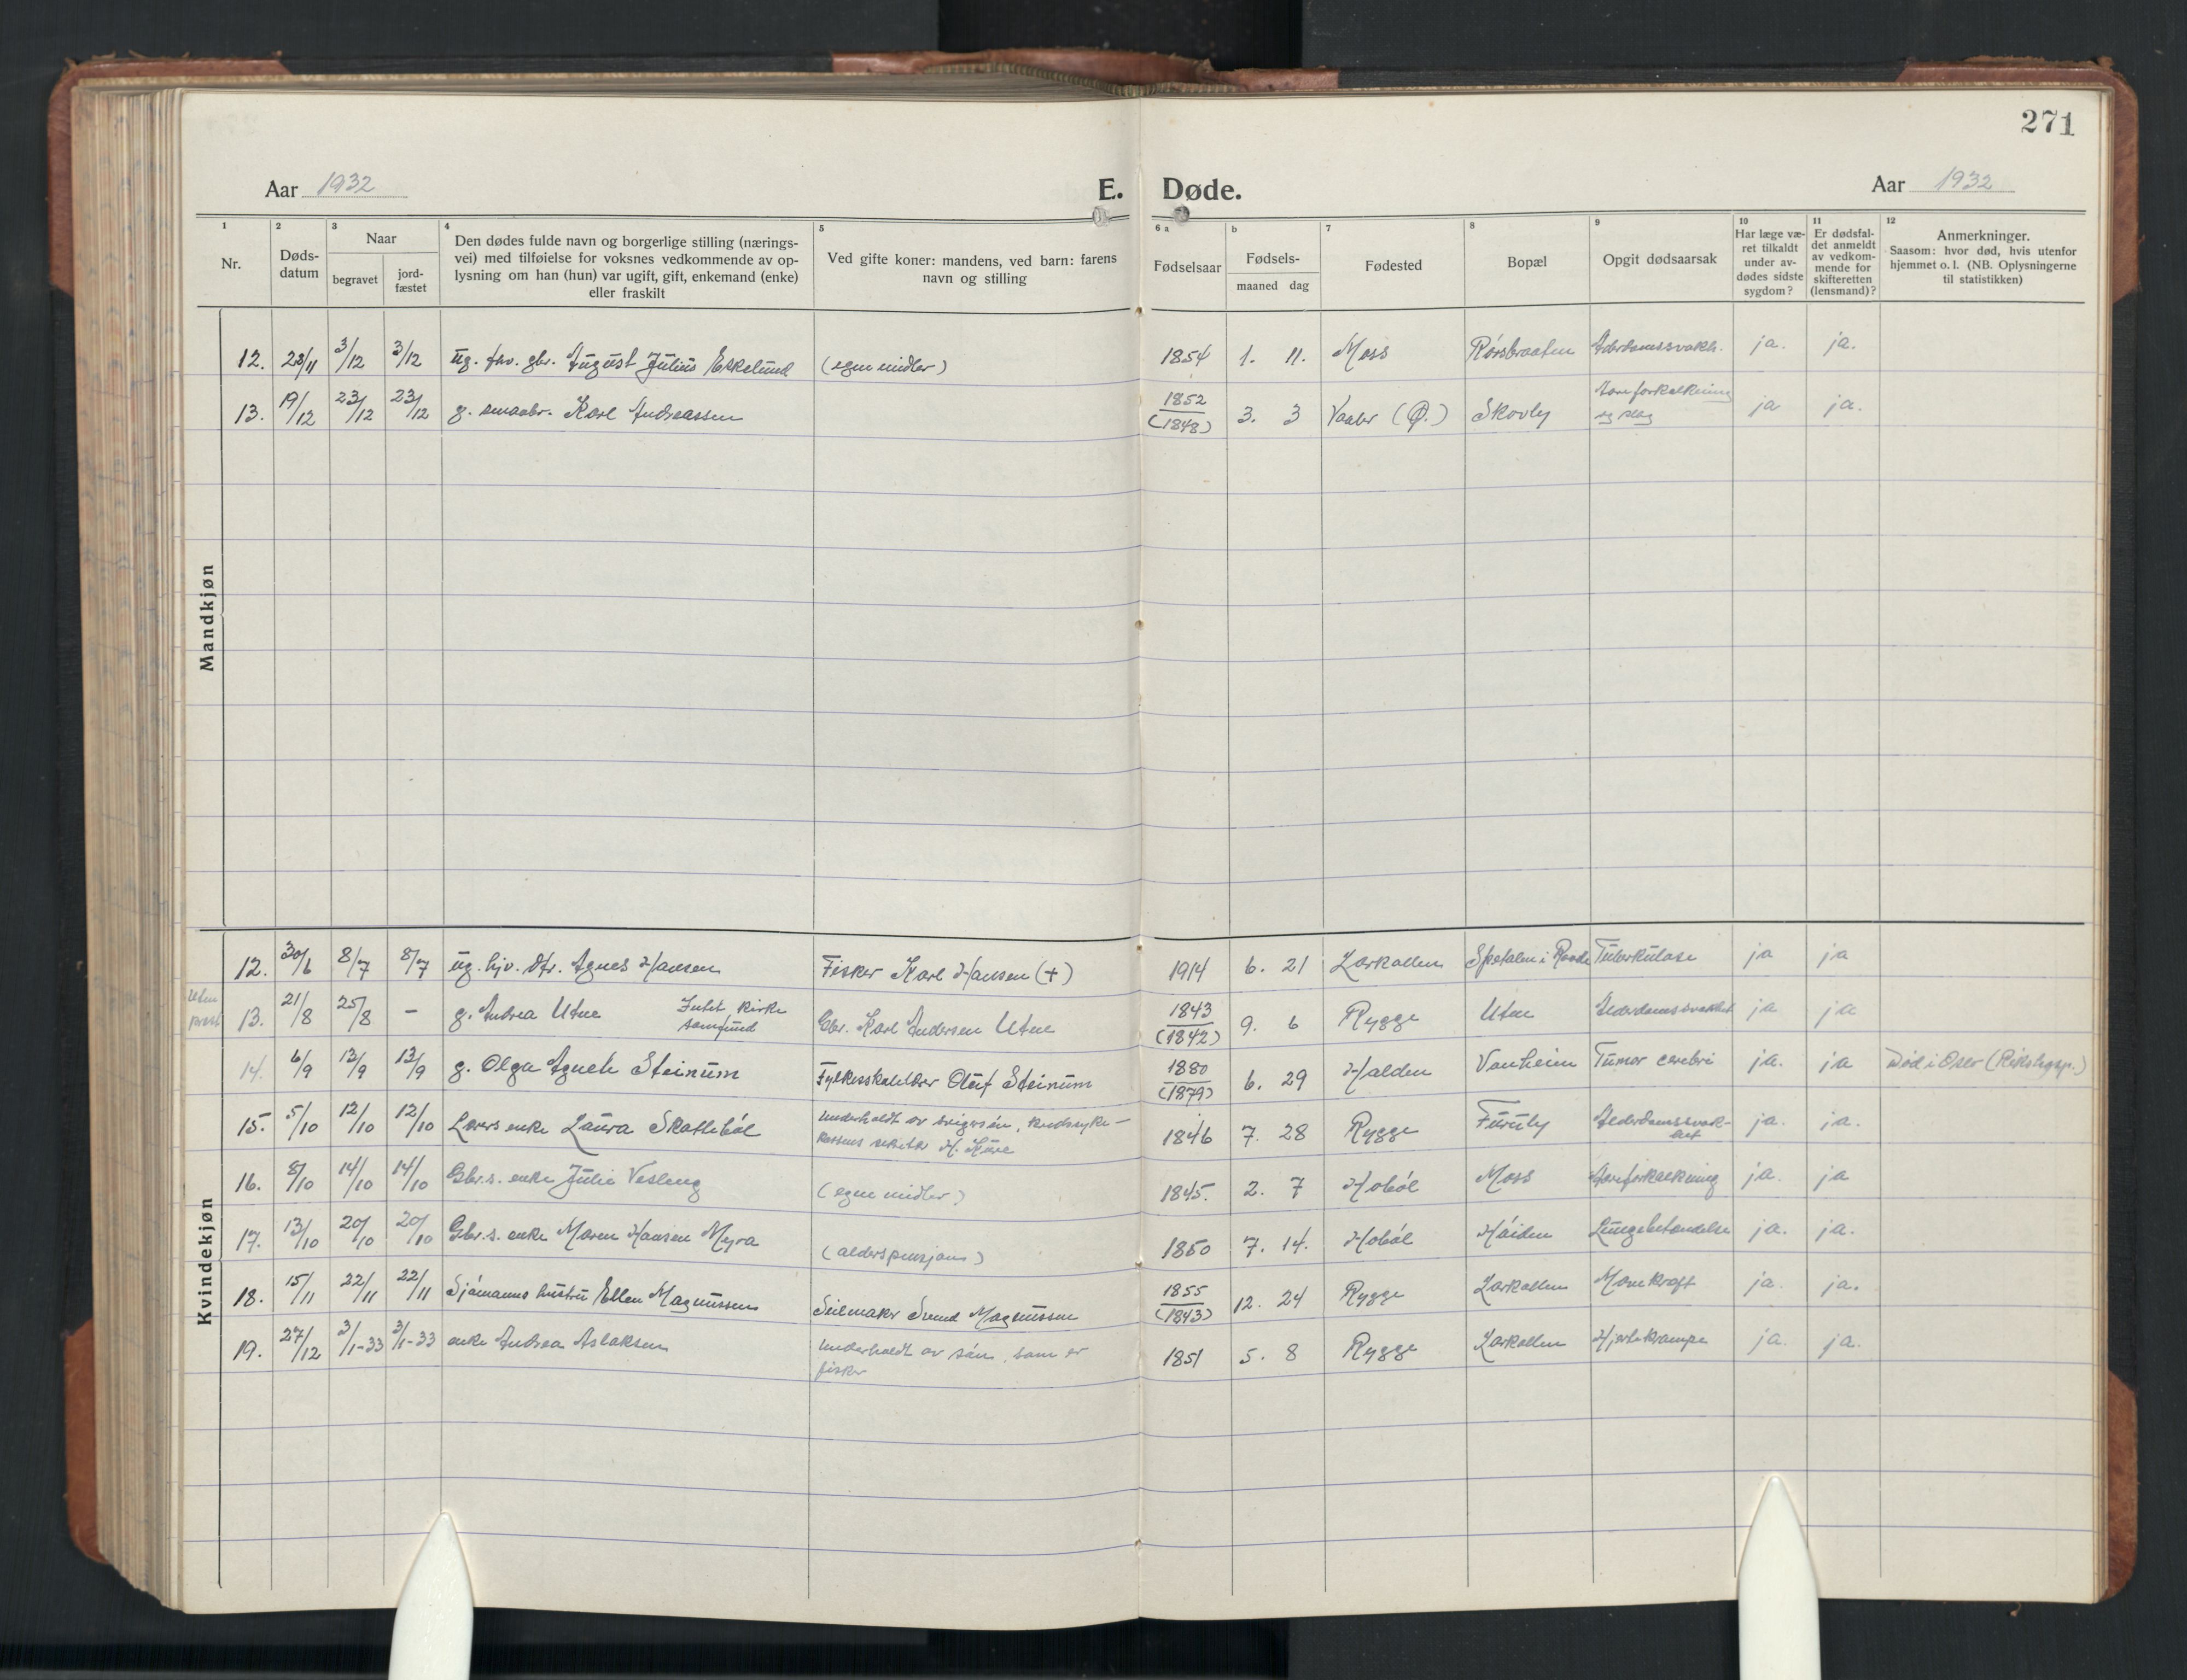 271
Aar 1932 E. Døde. Aar 1932
1 2 3 4 5 6 a b 7 8 9 10 11 12
Nr.
Døds-
datum
Naar
begravet
jord-
fæstet
Den dødes fulde navn og borgerlige stilling (nærings-
vei) med tilføielse for voksnes vedkommende av op-
lysning om han (hun) var ugift, gift, enkemand (enke)
eller fraskilt
Ved gifte koner: mandens, ved barn: farens
navn og stilling
Fødselsaar
Fødsels-
maaned dag
Fødested
Bopæl
Opgit dødsaarsak
Har læge væ-
ret tilkaldt
under av-
dødes sidste
sygdom?
Er dødsfal-
det anmeldt
av vedkom-
mende for
skifteretten
(lensmand)?
Anmerkninger.
Saasom: hvor død, hvis utenfor
hjemmet o. l. (NB. Oplysningerne
til statistikken)
Mandkjøn
12. 28/11 3/12 3/12 ug. fhv. gbr. August Julius Ekkelund (egne midler) 1854 1. 11. Moss Rørsbraaten Alderdomssvakh. ja. ja.
13. 19/12 23/12 23/12 g. smaabr. Karl Andreassen 1852 (1848) 3. 3 Vaaler (Ø.) Skovly Aareforkalkning og slag ja ja.
Kvindekjøn
12. 30/6 8/7 8/7 ug. hjv. dtr. Agnes Hansen Fisker Karl Hansen (+) 1914 6. 21 Larkollen Spetalen i Raade Tuberkulose ja ja
Uten prest 13. 21/8 25/8 – g. Andrea Utne Intet kirke samfund Gbr. Karl Andersen Utne 1843 (1842) 9. 6 Rygge Utne Alderdomssvakhet ja ja
14. 6/9 13/9 13/9 g. Olga Agnete Steinum Fylkesskolelærer Oluf Steinum 1880 (1879) 6. 29 Halden Vanheim Tumor cerebri ja. ja Død i Oslo (Rikshosp.)
15. 5/10 12/10 12/10 Lærers enke Laura Skattebøl Underholdt av svigersøn, kredssyke-
kassens sekretær H. Kure 1846 7. 28 Rygge Furuly Alderdomssvak-
het ja. ja.
16. 8/10 14/10 14/10 Gbr.s. enke Julie Vesleng (egne midler) 1845. 2. 7 Hobøl Moss Aareforkalkning ja. ja
17. 13/10 20/10 20/10 Gbr.s. enke Maren Hansen Myra (alderspensjon) 1850 7. 14. Hobøl Høiden Lungebetændelse ja. ja.
18. 15/11 22/11 22/11 Sjømanns hustru Ellen Magnussen Seilmaker Svend Magnussen 1855 (1843) 12. 24 Rygge Larkollen Mavekræft ja. ja.
19. 27/12 3/1-33 3/1-33 enke Andrea Aslaksen Underholdt av søn, som er
fisker 1851 5. 8 Rygge Larkollen Hjertekrampe ja. ja.